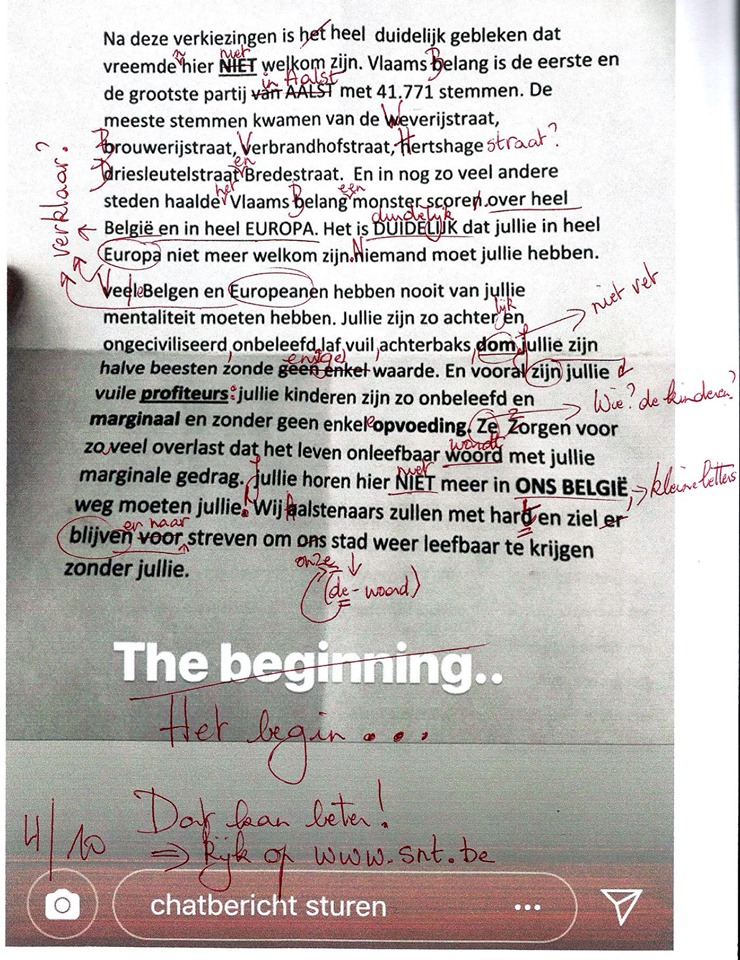 Na deze verkiezingen is het heel duidelijk gebleken dat
n niet
vreemde hier NIET welkom zijn. Vlaams Belang is de eerste en
in Aalst
de grootste partij van AALST met 41.771 stemmen. De
meeste stemmen kwamen van de Weverijstraat,
Brouwerijstraat, Verbrandhofstraat, Hertshage straat?
en
Driesleutelstraat Bredestraat. En in nog zo veel andere
het een
steden haalde Vlaams Belang monster scoren.over heel
duidelijk
België en in heel EUROPA. Het is DUIDELIJK dat jullie in heel
verklaar?
Europa niet meer welkom zijn.Niemand moet jullie hebben.
Veel Belgen en Europeanen hebben nooit van jullie
niet vet
lijk
mentaliteit moeten hebben. Jullie zijn zo achter en
ongeciviliseerd onbeleefd laf vuil achterbaks dom jullie zijn
enige
halve beesten zonde geen enkel waarde. En vooral zijn jullie
vuile profiteurs: jullie kinderen zijn zo onbeleefd en
Wie? de kinderen?
marginaal en zonder geen enkel opvoeding. Ze Zorgen voor
wordt
zo veel overlast dat het leven onleefbaar woord met jullie
niet
marginale gedrag. jullie horen hier NIET meer in ONS BELGIË
kleine letters
weg moeten jullie! Wij Aalstenaars zullen met hard en ziel er
en naar
blijven voor streven om ons stad weer leefbaar te krijgen
onze
zonder jullie.
(de-woord)
The beginning..
Het begin...
4/10
Dat kan beter!
⇒ kijk op www.snt.be
chatbericht sturen